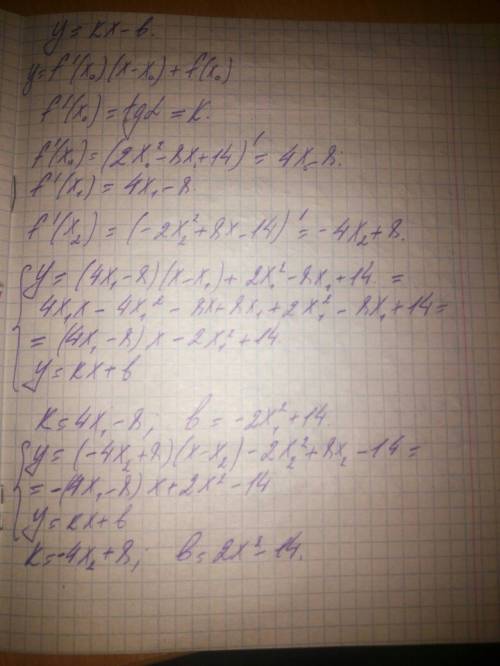 y = kx - b.
y = f'(x₀)(x-x₀) + f(x₀)
f'(x₀) = tgα = k.
f'(x₀) = (2x₁² - 8x₁ + 14)' = 4x - 8.
f'(x₁) = 4x₁ - 8.
f'(x₂) = (-2x₂² + 8x - 14)' = -4x₂ + 8.
y = (4x₁ - 8)(x - x₁) + 2x₁² - 8x₁ + 14 =
4x₁x - 4x₁² - 8x + 8x₁ + 2x₁² - 8x₁ + 14 =
= (4x₁ - 8)x - 2x₁² + 14
y = kx + b
k = 4x₁ - 8; b = -2x₁² + 14.
y = (-4x₂ + 8)(x - x₂) - 2x₂² + 8x₂ - 14 =
= -(4x₁ - 8)x + 2x² - 14
y = kx + b
k = -4x₂ + 8; b = 2x² - 14.